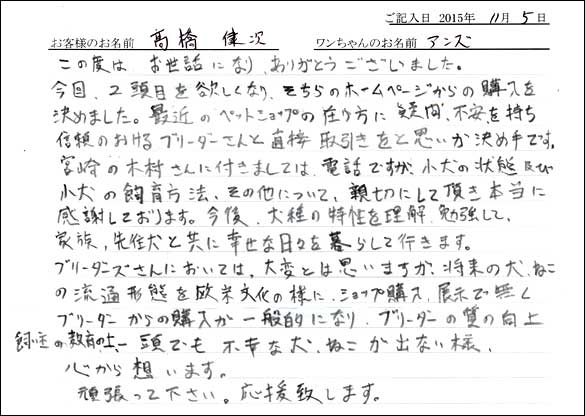 ご記入日 2015年 11月 5日
お客様のお名前 高橋 健次 ワンちゃんのお名前 アンズ
この度は、お世話になり、ありがとうございました。
今回、2頭目を欲しくなり、そちらのホームページからの購入を
決めました。最近のペットショップの在り方に疑問、不安を持ち
信頼のおけるブリーダーさんと直接取引きをと思いが決め手です。
宮崎の木村さんに付きましては、電話ですが、小犬の状態及び
小犬の飼育方法、その他について、親切にして頂き本当に
感謝しております。今後、犬種の特性を理解、勉強して、
家族、先住犬と共に幸せな日々を暮らして行きます。
ブリーダーズさんにおいては、大変とは思いますが、将来の犬、ねこ
の流通形態を欧米文化の様に、ショップ購入、展示で無く
ブリーダーからの購入が一般的になり、ブリーダーの質の向上
飼主の教育の上、一頭でも不幸な犬、ねこが出ない様、
心から想います。
頑張って下さい。応援致します。